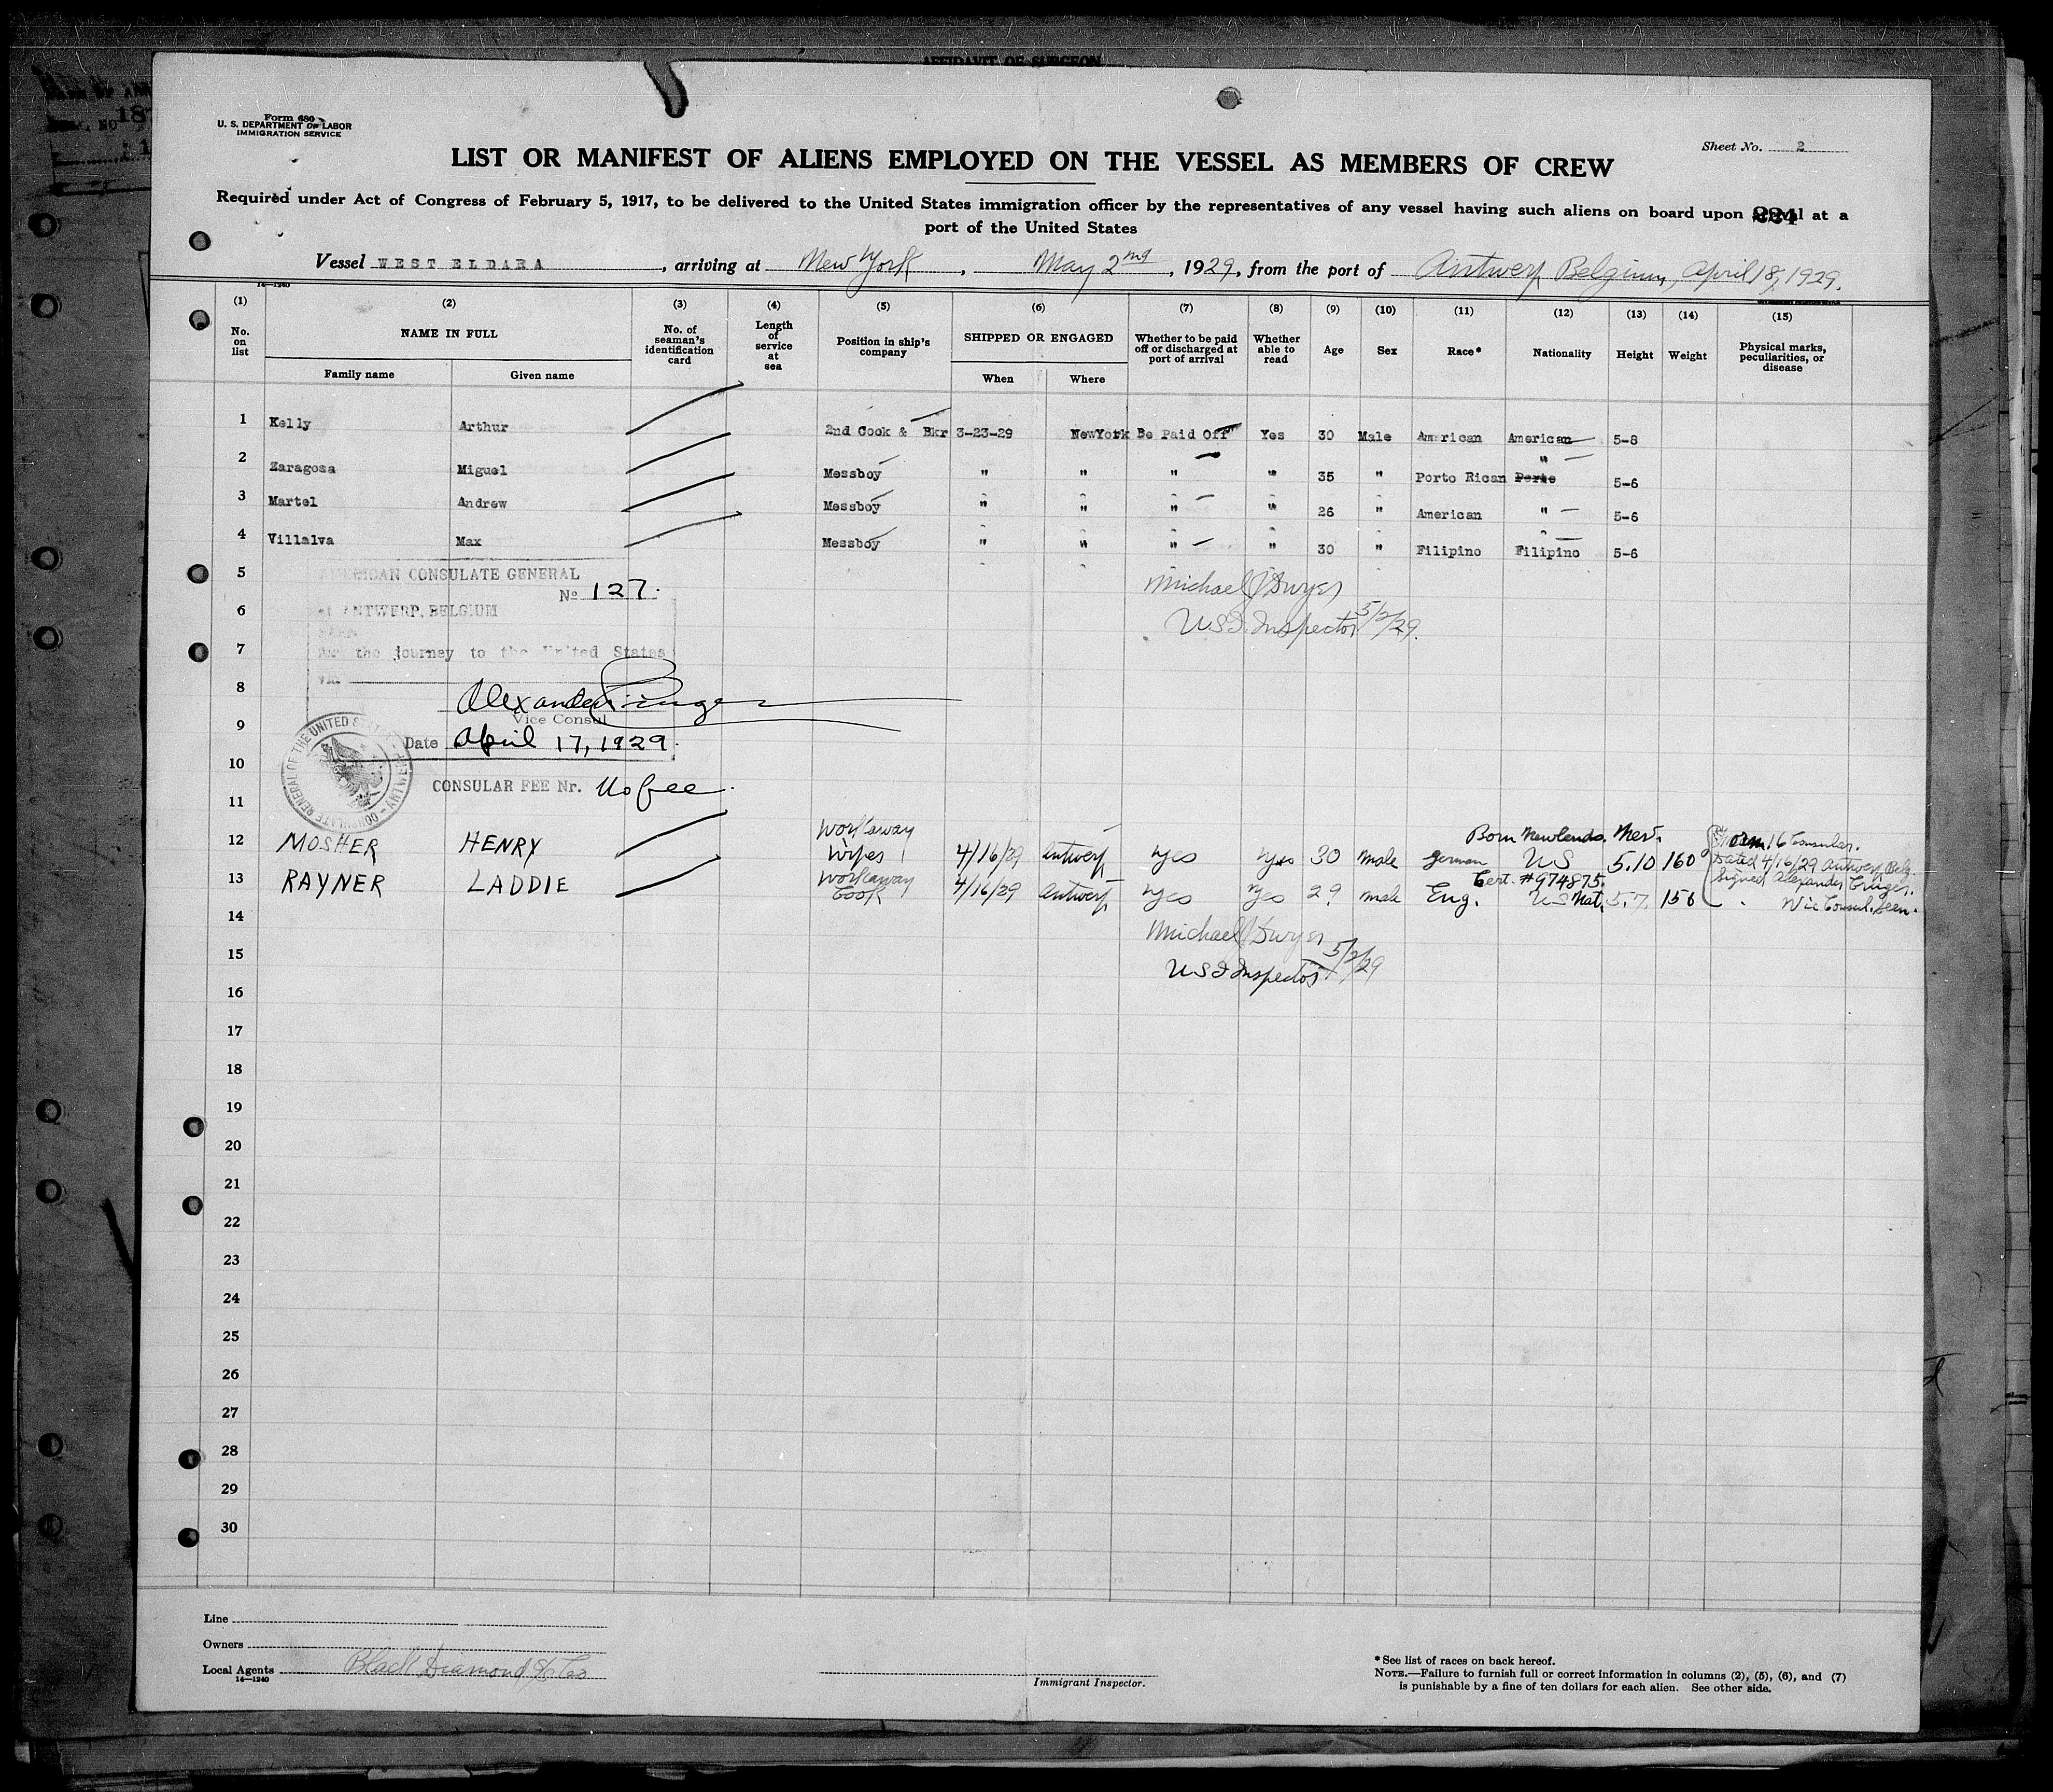 AFFIDAVIT OF SURGEON
Form 680
U. S. DEPARTMENT OF LABOR
IMMIGRATION SERVICE
Sheet No. 2
LIST OR MANIFEST OF ALIENS EMPLOYED ON THE VESSEL AS MEMBERS OF CREW
Required under Act of Congress of February 5, 1917, to be delivered to the United States immigration officer by the representatives of any vessel having such aliens on board upon arrival at a
port of the United States
Vessel WEST ELDARA, arriving at New York, May 2nd, 1929, from the port of Antwerp Belgium, April 18, 1929.
14—1240
(1) (2) (3) (4) (5) (6) (7) (8) (9) (10) (11) (12) (13) (14) (15)
No. on list NAME IN FULL Family name Given name No. of seaman's identification card Length of service at sea Position in ship's company SHIPPED OR ENGAGED When Where Whether to be paid off or discharged at port of arrival Whether able to read Age Sex Race* Nationality Height Weight Physical marks, peculiarities, or disease
1 Kelly Arthur 2nd Cook & Bkr 3-23-29 NewYork Be Paid Off Yes 30 Male American American 5-8
2 Zaragosa Miguel Messboy " " " " 35 " Porto Rican Porto " 5-6
3 Martel Andrew Messboy " " " " 26 " American " 5-6
4 Villalva Max Messboy " " " " 30 " Filipino Filipino 5-6
5 AMERICAN CONSULATE GENERAL
No 127.
Michael J Dwyer
6 at ANTWERP, BELGIUM
USI. Inspector 5/2/29.
SEEN
7 for the journey to the United States
via
8 Alexander Cruger
Vice Consul
9 Date April 17, 1929.
10
CONSULAR FEE Nr. No fee.
11
12 MOSHER HENRY Workaway Wiper 4/16/29 Antwerp Yes Yes 30 male German Born Newlands. Nev. US 5.10 160 Form 16 Consular.
Dated 4/16/29 Antwerp Belg.
13 RAYNER LADDIE Workaway Cook 4/16/29 Antwerp Yes Yes 29 male Eng. Cert. #974875. US Nat. 5.7. 156 Signed Alexander Cruger.
Vice Consul. Seen.
14 Michael J Dwyer
15 USI Inspector 5/2/29
16
17
18
19
20
21
22
23
24
25
26
27
28
29
30
Line
Owners
Local Agents Black Diamond SS Co
14—1240
Immigrant Inspector.
*See list of races on back hereof.
NOTE.—Failure to furnish full or correct information in columns (2), (5), (6), and (7)
is punishable by a fine of ten dollars for each alien. See other side.